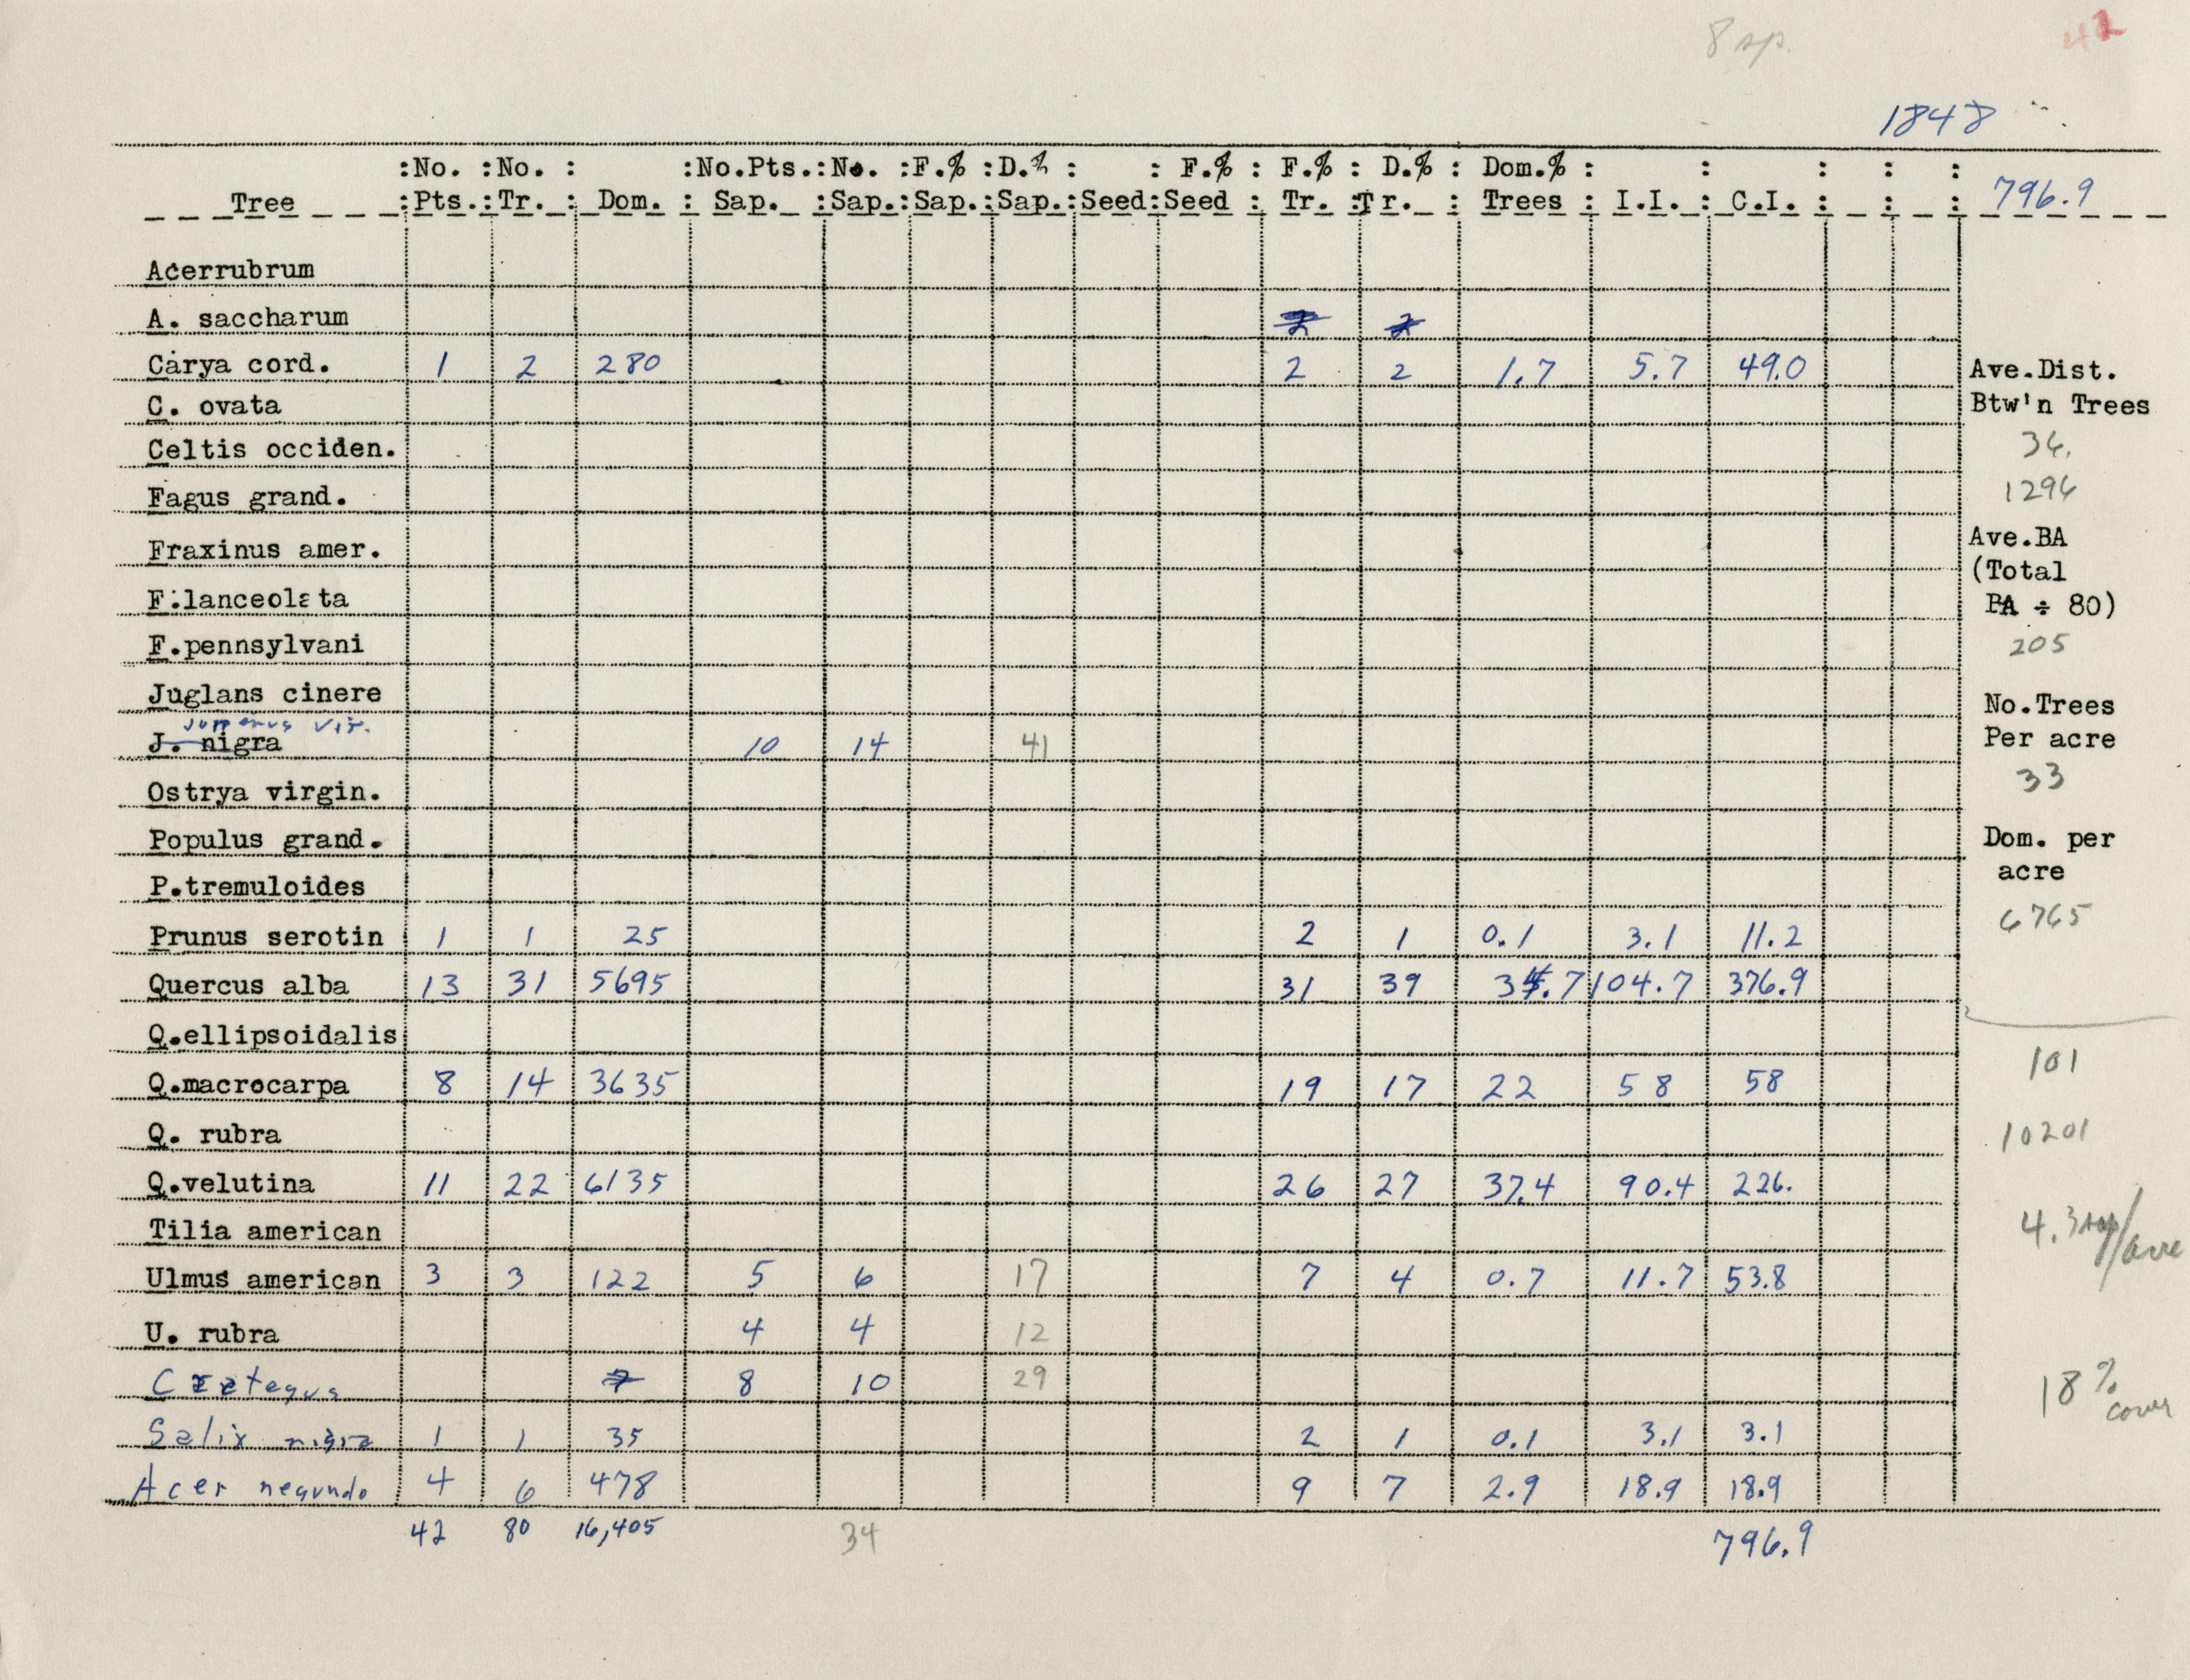 8 sp.
42
1848
:No. :No. : :No.Pts.:No. :F.% :D.% : : F.% : F.% : D.% : Dom.% : : : : :
Tree :Pts.:Tr. : Dom. : Sap. :Sap.:Sap.:Sap.:Seed:Seed : Tr. :Tr. : Trees : I.I. : C.I. : : : 796.9
Acerrubrum
A. saccharum 2 2
Carya cord. 1 2 280 2 2 1.7 5.7 49.0 Ave.Dist.
C. ovata Btw'n Trees
Celtis occiden. 36.
Fagus grand. 1296
Fraxinus amer. Ave.BA
(Total
F.lanceolata BA ÷ 80)
F.pennsylvani 205
Juglans cinere No.Trees
Juniperus vir.
J. nigra 10 14 41 Per acre
Ostrya virgin. 33
Populus grand. Dom. per
P.tremuloides acre
Prunus serotin 1 1 25 2 1 0.1 3.1 11.2 6765
Quercus alba 13 31 5695 31 39 34.7 104.7 376.9
Q.ellipsoidalis
101
Q.macrocarpa 8 14 3635 19 17 22 58 58
Q. rubra 10201
Q.velutina 11 22 6135 26 27 37.4 90.4 226.
Tilia american 4.3 sap/acre
Ulmus american 3 3 122 5 6 17 7 4 0.7 11.7 53.8
U. rubra 4 4 12
Crategus 7 8 10 29 18% cover
Salix nigra 1 1 35 2 1 0.1 3.1 3.1
Acer negundo 4 6 478 9 7 2.9 18.9 18.9
42 80 16,405 34 796.9